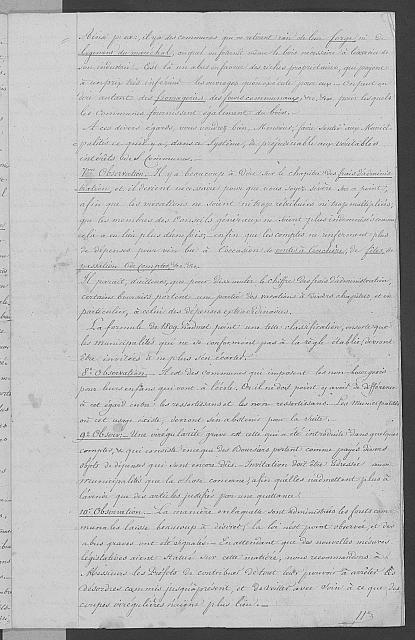 Ainsi p. ex: il y a des communes qui ne retirent rien de leur forge, ni du
logement du maréchal, auquel on fournit même le bois nécessaire à l'exercice de
son industrie. C'est là un abus en faveur des riches propriétaires, qui payent
à un prix très inférieur les ouvrages qu'on exécute pour eux. — On peut en
dire autant des fromageries, des fours communaux, &c, &c, pour lesquels
les Communes fournissent également du bois.
A ces divers égards, vous voudrez bien, Monsieur, faire sentir aux Munici-
palités ce qu'il y a, dans ce système, de préjudiciable aux véritables
intérêts des Communes.
7me Observation. Il y a beaucoup à dire sur le chapitre des frais d'adminis-
tration, et il devient nécessaire pour que vous soyez sévère sur ce point,
afin que les vacations ne soient ni trop rétribuées ni trop multipliées;
que les membres des Conseils généraux ne soient plus indemnisés comme
cela a eu lieu plus d'une fois; enfin que les comptes ne renferment plus
de dépenses pour vin bu à l'occasion de ventes à l'enchère, de fêtes, de
passation de comptes &c. &c.
Il paraît, d'ailleurs, que pour dissimuler le chiffre des frais d'administration,
certains boursiers portent une partie des vacations à divers chapitres et en
particulier, à celui des dépenses extraordinaires.
La formule de 1829 n'admet point une telle classification, ensorte que
les municipalités qui ne se conforment pas à la règle établie, devront
être invitées à ne plus s'en écarter.
8e Observation. — Il est des communes qui imposent les non-bourgeois
pour leurs enfans qui vont à l'école. Or il ne doit point y avoir de différence
à cet égard entre les ressortissans et les non-ressortissans. Les Municipalités
où cet usage existe, devront s'en abstenir par la suite.
9e Observ: — Une irrégularité grave est celle qui a été introduite dans quelques
comptes, & qui consiste en ce que des Boursiers portent comme payés divers
objets de dépenses qui sont encore dûs. — Invitation doit être adressée aux
municipalités que la chose concerne, afin qu'elles n'admettent plus à
l'avenir que des articles justifiés par une quittance.
10e Observation. — La manière en laquelle sont administrées les forêts com-
munales laisse beaucoup à désirer; la loi n'est point observée et des
abus graves ont été signalés. — En attendant que des nouvelles mesures
législatives aient statué sur cette matière, nous recommandons à
Messieurs les Préfets de contribuer de tout leur pouvoir à arrêter les
désordres commis jusqu'à présent, et de veiller avec soin à ce que des
coupes irrégulières n'aient plus lieu. —